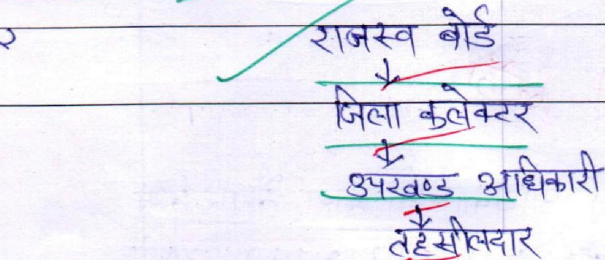 राजस्व बोर्ड
↓
जिला कलेक्टर
↓
उपखण्ड अधिकारी
↓
तहसीलदार